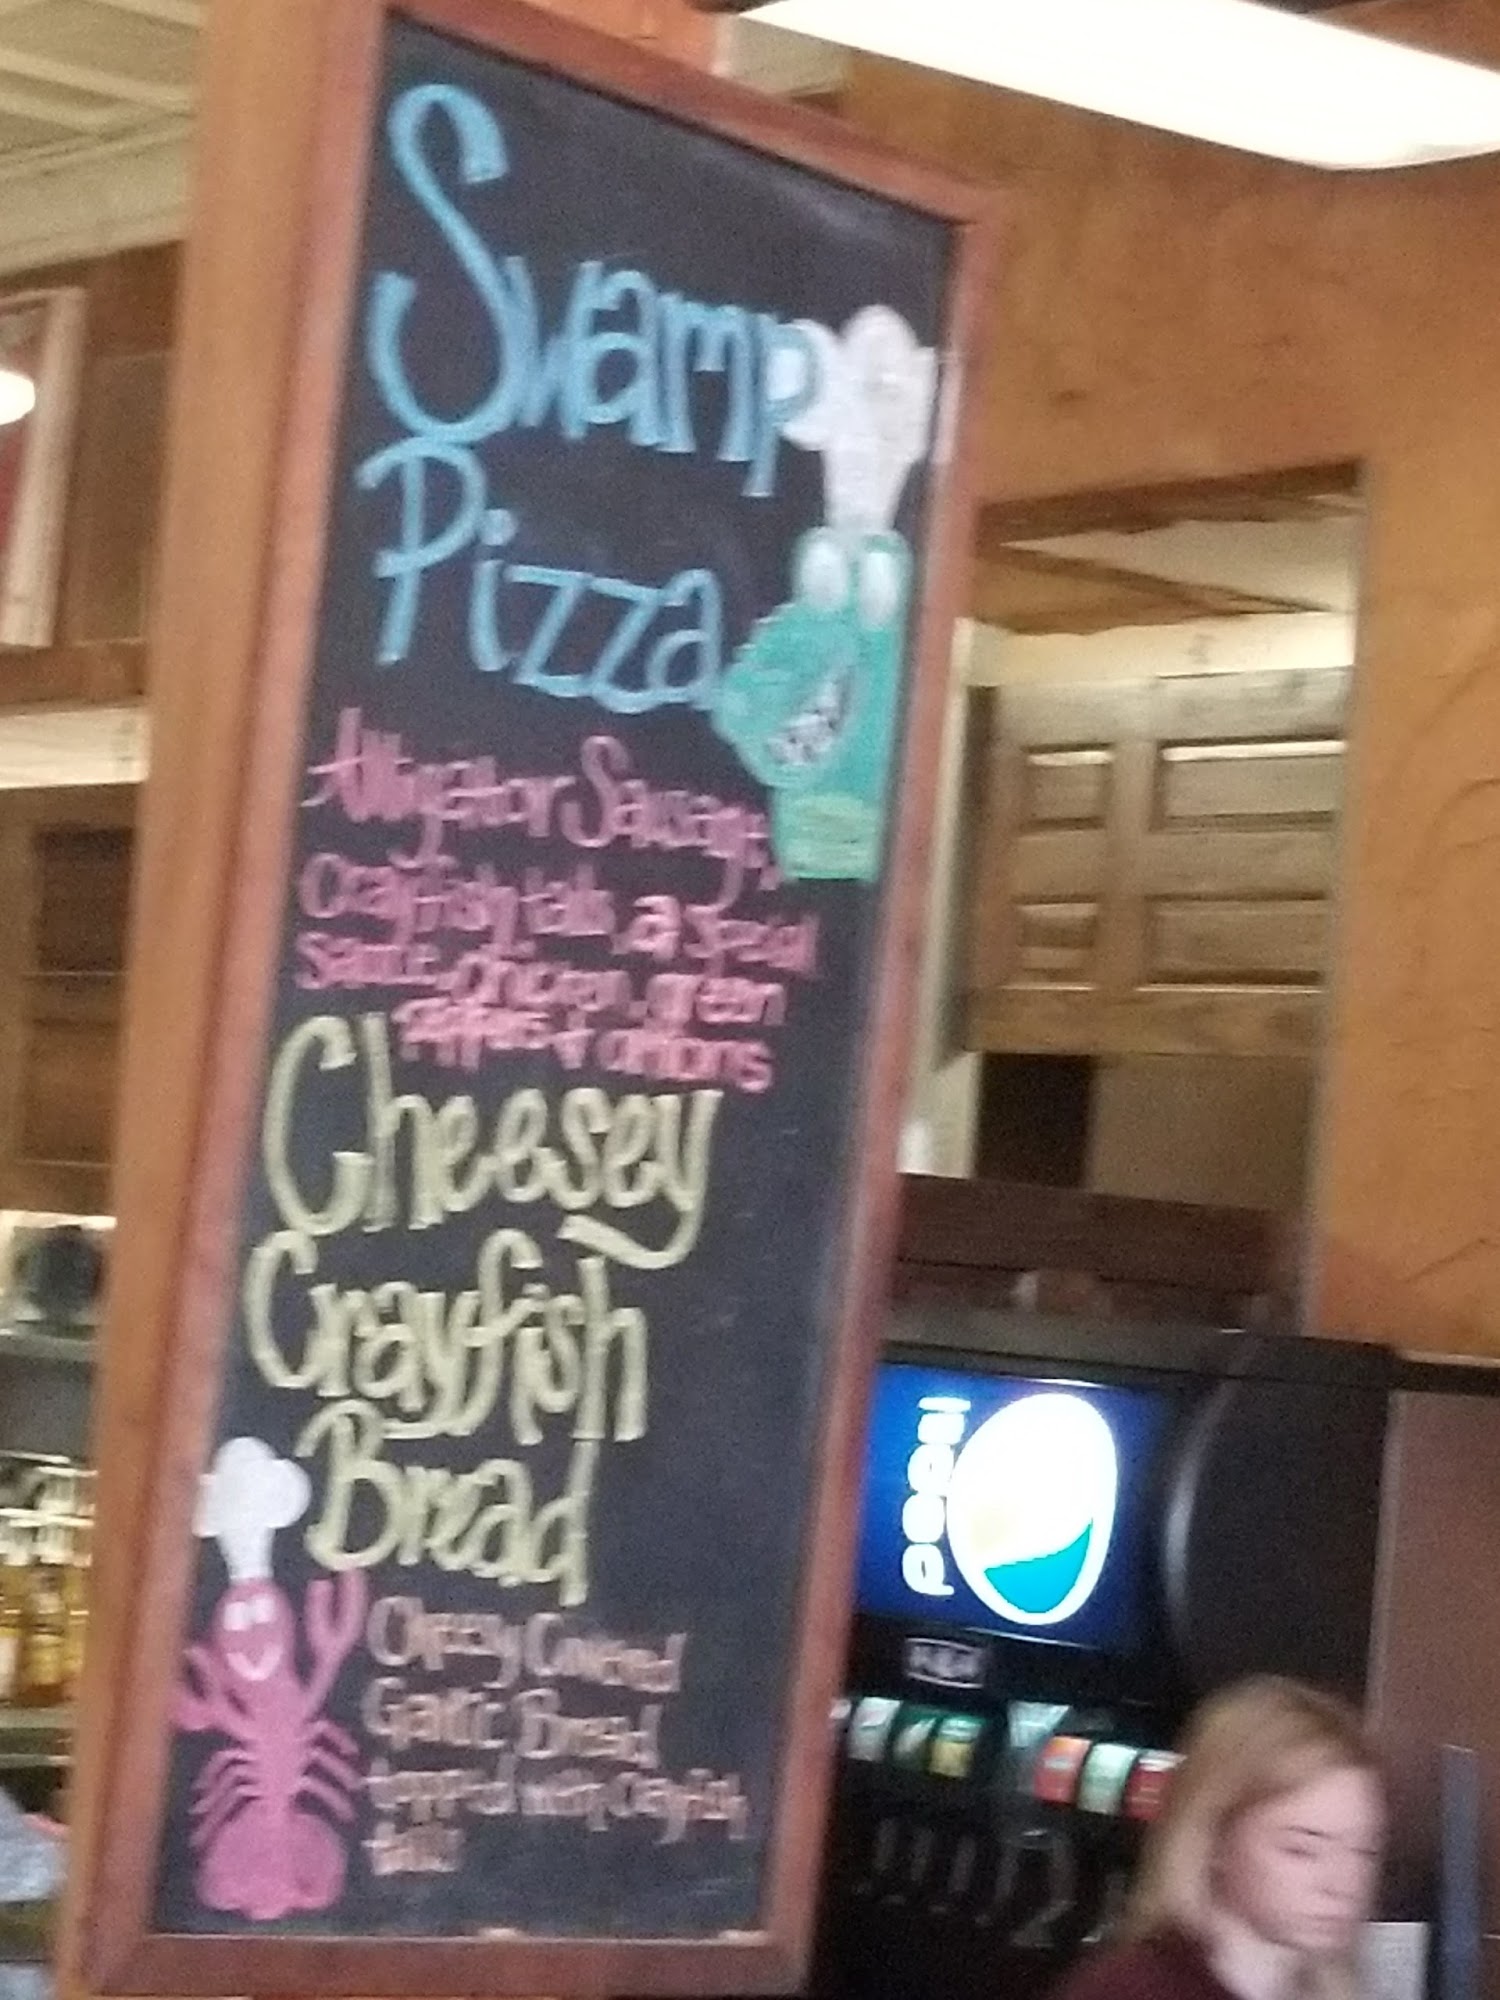 Swamp
Pizza
Alligator Sausage,
Crayfish tails, a special
sauce, chicken, green
peppers & onions
Cheesey
Crayfish
Bread
Cheesy Covered
Garlic Bread
topped with Crayfish
tails
pepsi